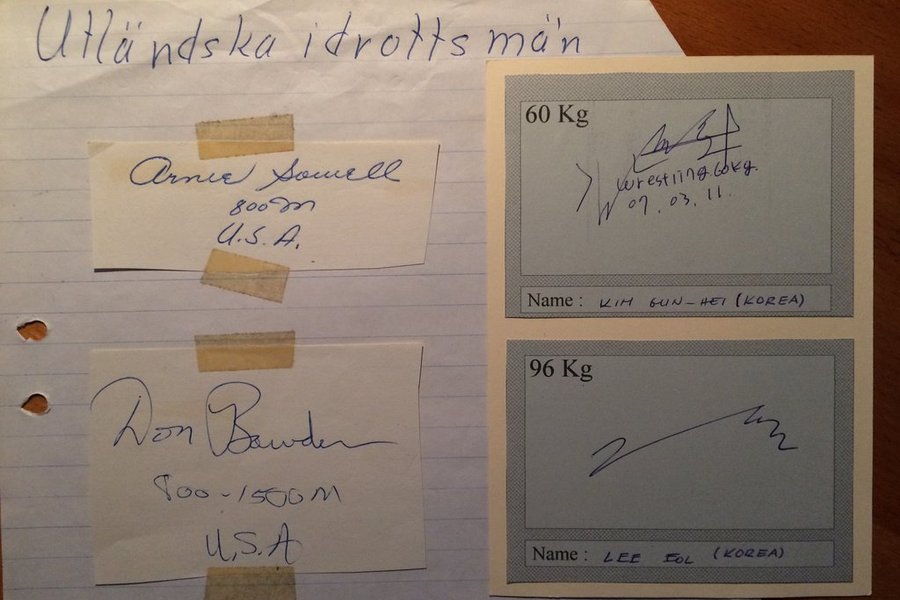 Utländska idrottsmän
Arnie Sowell
800 m
U.S.A.
Don Bowden
800-1500 m
U.S.A
60 Kg
wrestling.60kg.
07.03.11.
Name : KIM GUN-HEI (KOREA)
96 Kg
Name : LEE EOL (KOREA)